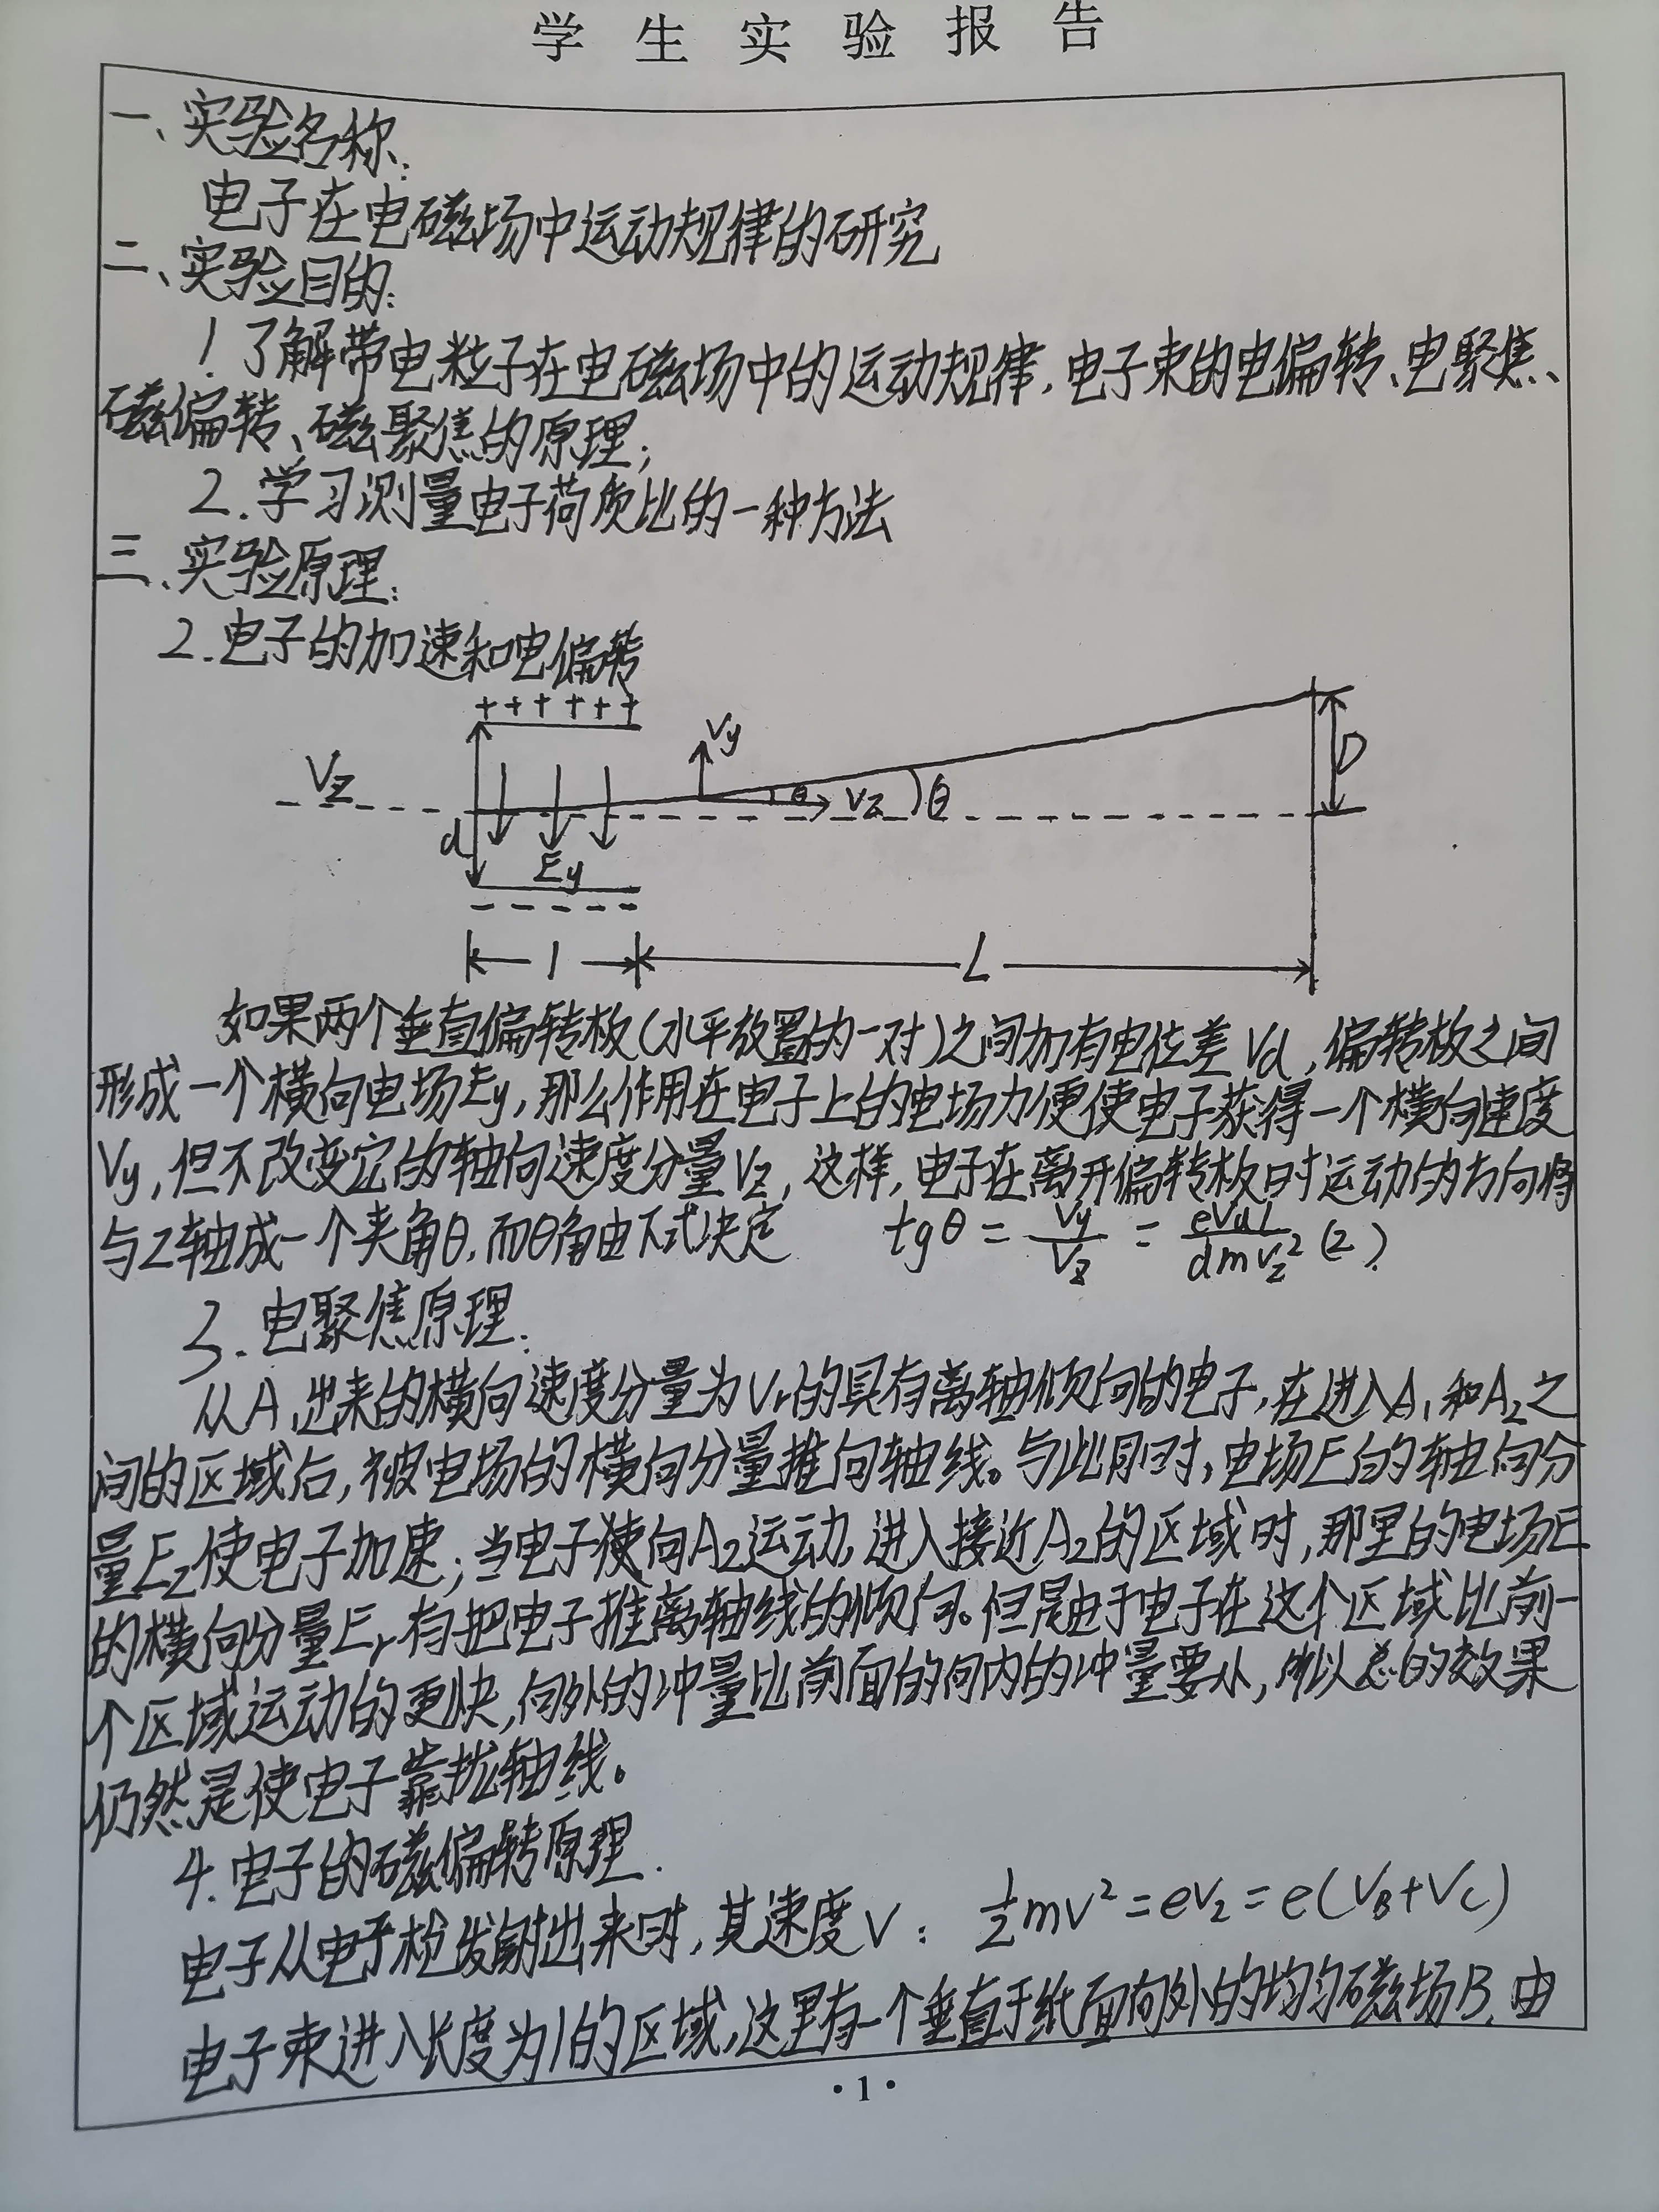 学生实验报告
一、实验名称:
电子在电磁场中运动规律的研究
二、实验目的:
1.了解带电粒子在电磁场中的运动规律,电子束的电偏转、电聚焦、
磁偏转、磁聚焦的原理;
2.学习测量电子荷质比的一种方法
三、实验原理:
2.电子的加速和电偏转
++++++
Vy
Vz
D
θ Vz θ
d
Ey
-----
l L
如果两个垂直偏转板(水平放置的一对)之间加有电位差Vd,偏转板之间
形成一个横向电场Ey,那么作用在电子上的电场力便使电子获得一个横向速度
Vy,但不改变它的轴向速度分量Vz,这样,电子在离开偏转板时运动的方向将
与Z轴成一个夹角θ,而θ角由下式决定 tgθ = Vy/Vz = eVdl/dmvz² (2).
3.电聚焦原理:
从A1出来的横向速度分量为Vr的具有离轴倾向的电子,在进入A1和A2之
间的区域后,被电场的横向分量推向轴线。与此同时,电场E的轴向分
量Ez使电子加速;当电子使向A2运动,进入接近A2的区域时,那里的电场E
的横向分量Er有把电子推离轴线的倾向。但是由于电子在这个区域比前一
个区域运动的更快,向外的冲量比前面的向内的冲量要小,所以总的效果
仍然是使电子靠拢轴线。
4.电子的磁偏转原理.
电子从电子枪发射出来时,其速度V: ½mv²=eV2=e(VB+VC)
电子束进入长度为l的区域,这里有一个垂直于纸面向外的均匀磁场B,由
·1·